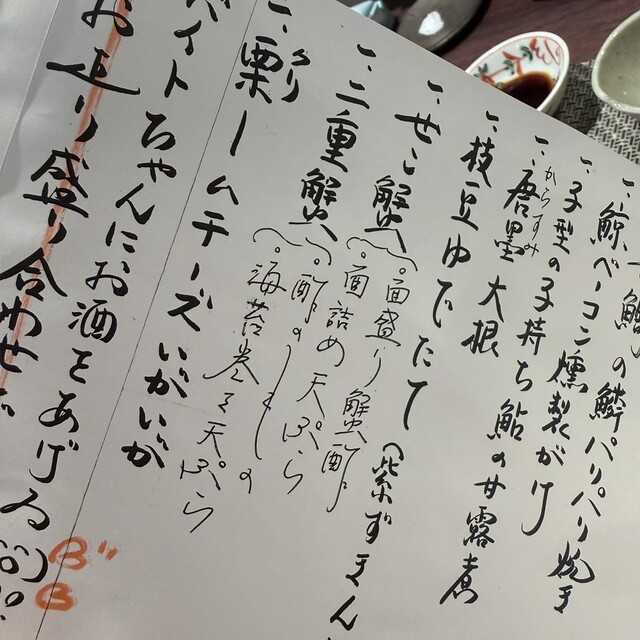 一、鯨ベーコン燻製がけ
一、子型の子持ち鮎の甘露煮
一、唐墨大根
からすみ
一、枝豆ゆでたて(紫ずきん
一、せこ蟹
面盛り蟹酢
面詰め天ぷら
一、二重蟹
酢のよしの
海苔巻き天ぷら
一、栗ームチーズいがいが
クリ
バイトちゃんにお酒をあげる
お造り盛り合わせで